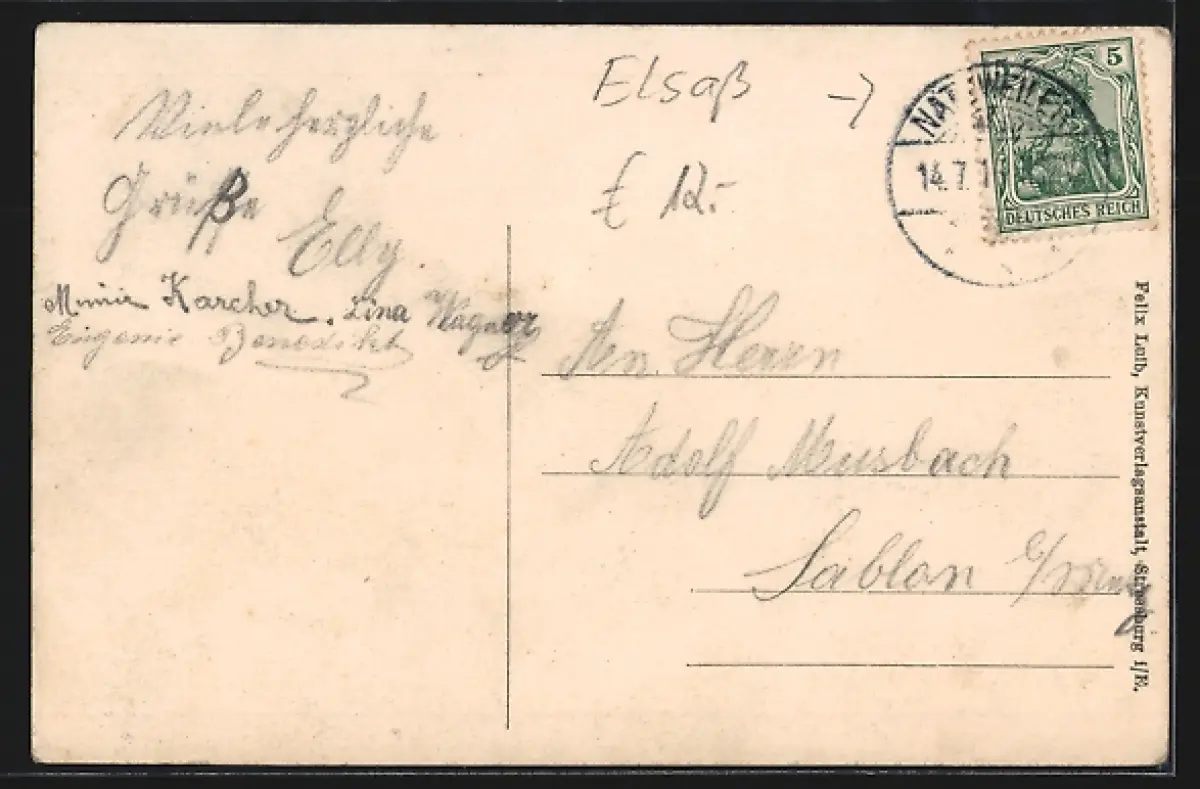 Elsaß →
€ 12.-
Viele herzliche
Grüße
Elly
Minnie Karcher. Lina Wagner
Eugenie Benedikt
NATZWEILER
14.7.1
5
DEUTSCHES REICH
An Herrn
Adolf Musbach
Sablon
Felix Luib, Kunstverlagsanstalt, Strassburg i/E.